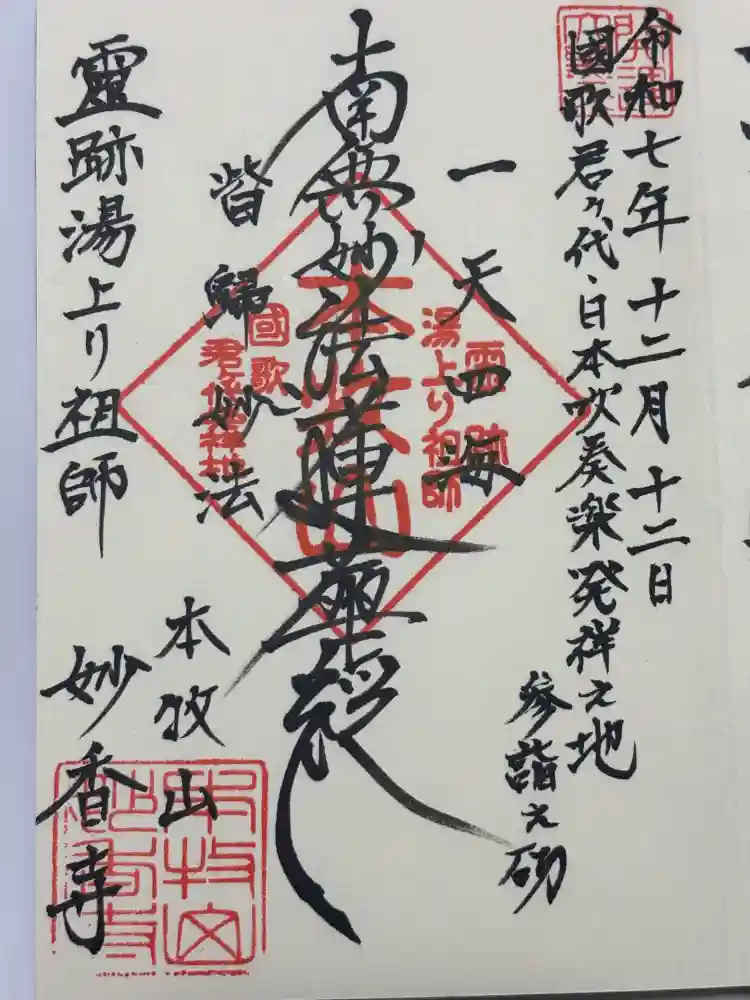 令和七年十二月十二日
國歌君ヶ代、日本吹奏楽発祥之地
参詣之砌
一天四海
南無妙法蓮華経
皆歸妙法
靈跡湯上り祖師
本牧山
妙香寺
靈跡
湯上り祖師
本牧山
國歌
君が代発祥地
本牧山
妙香寺